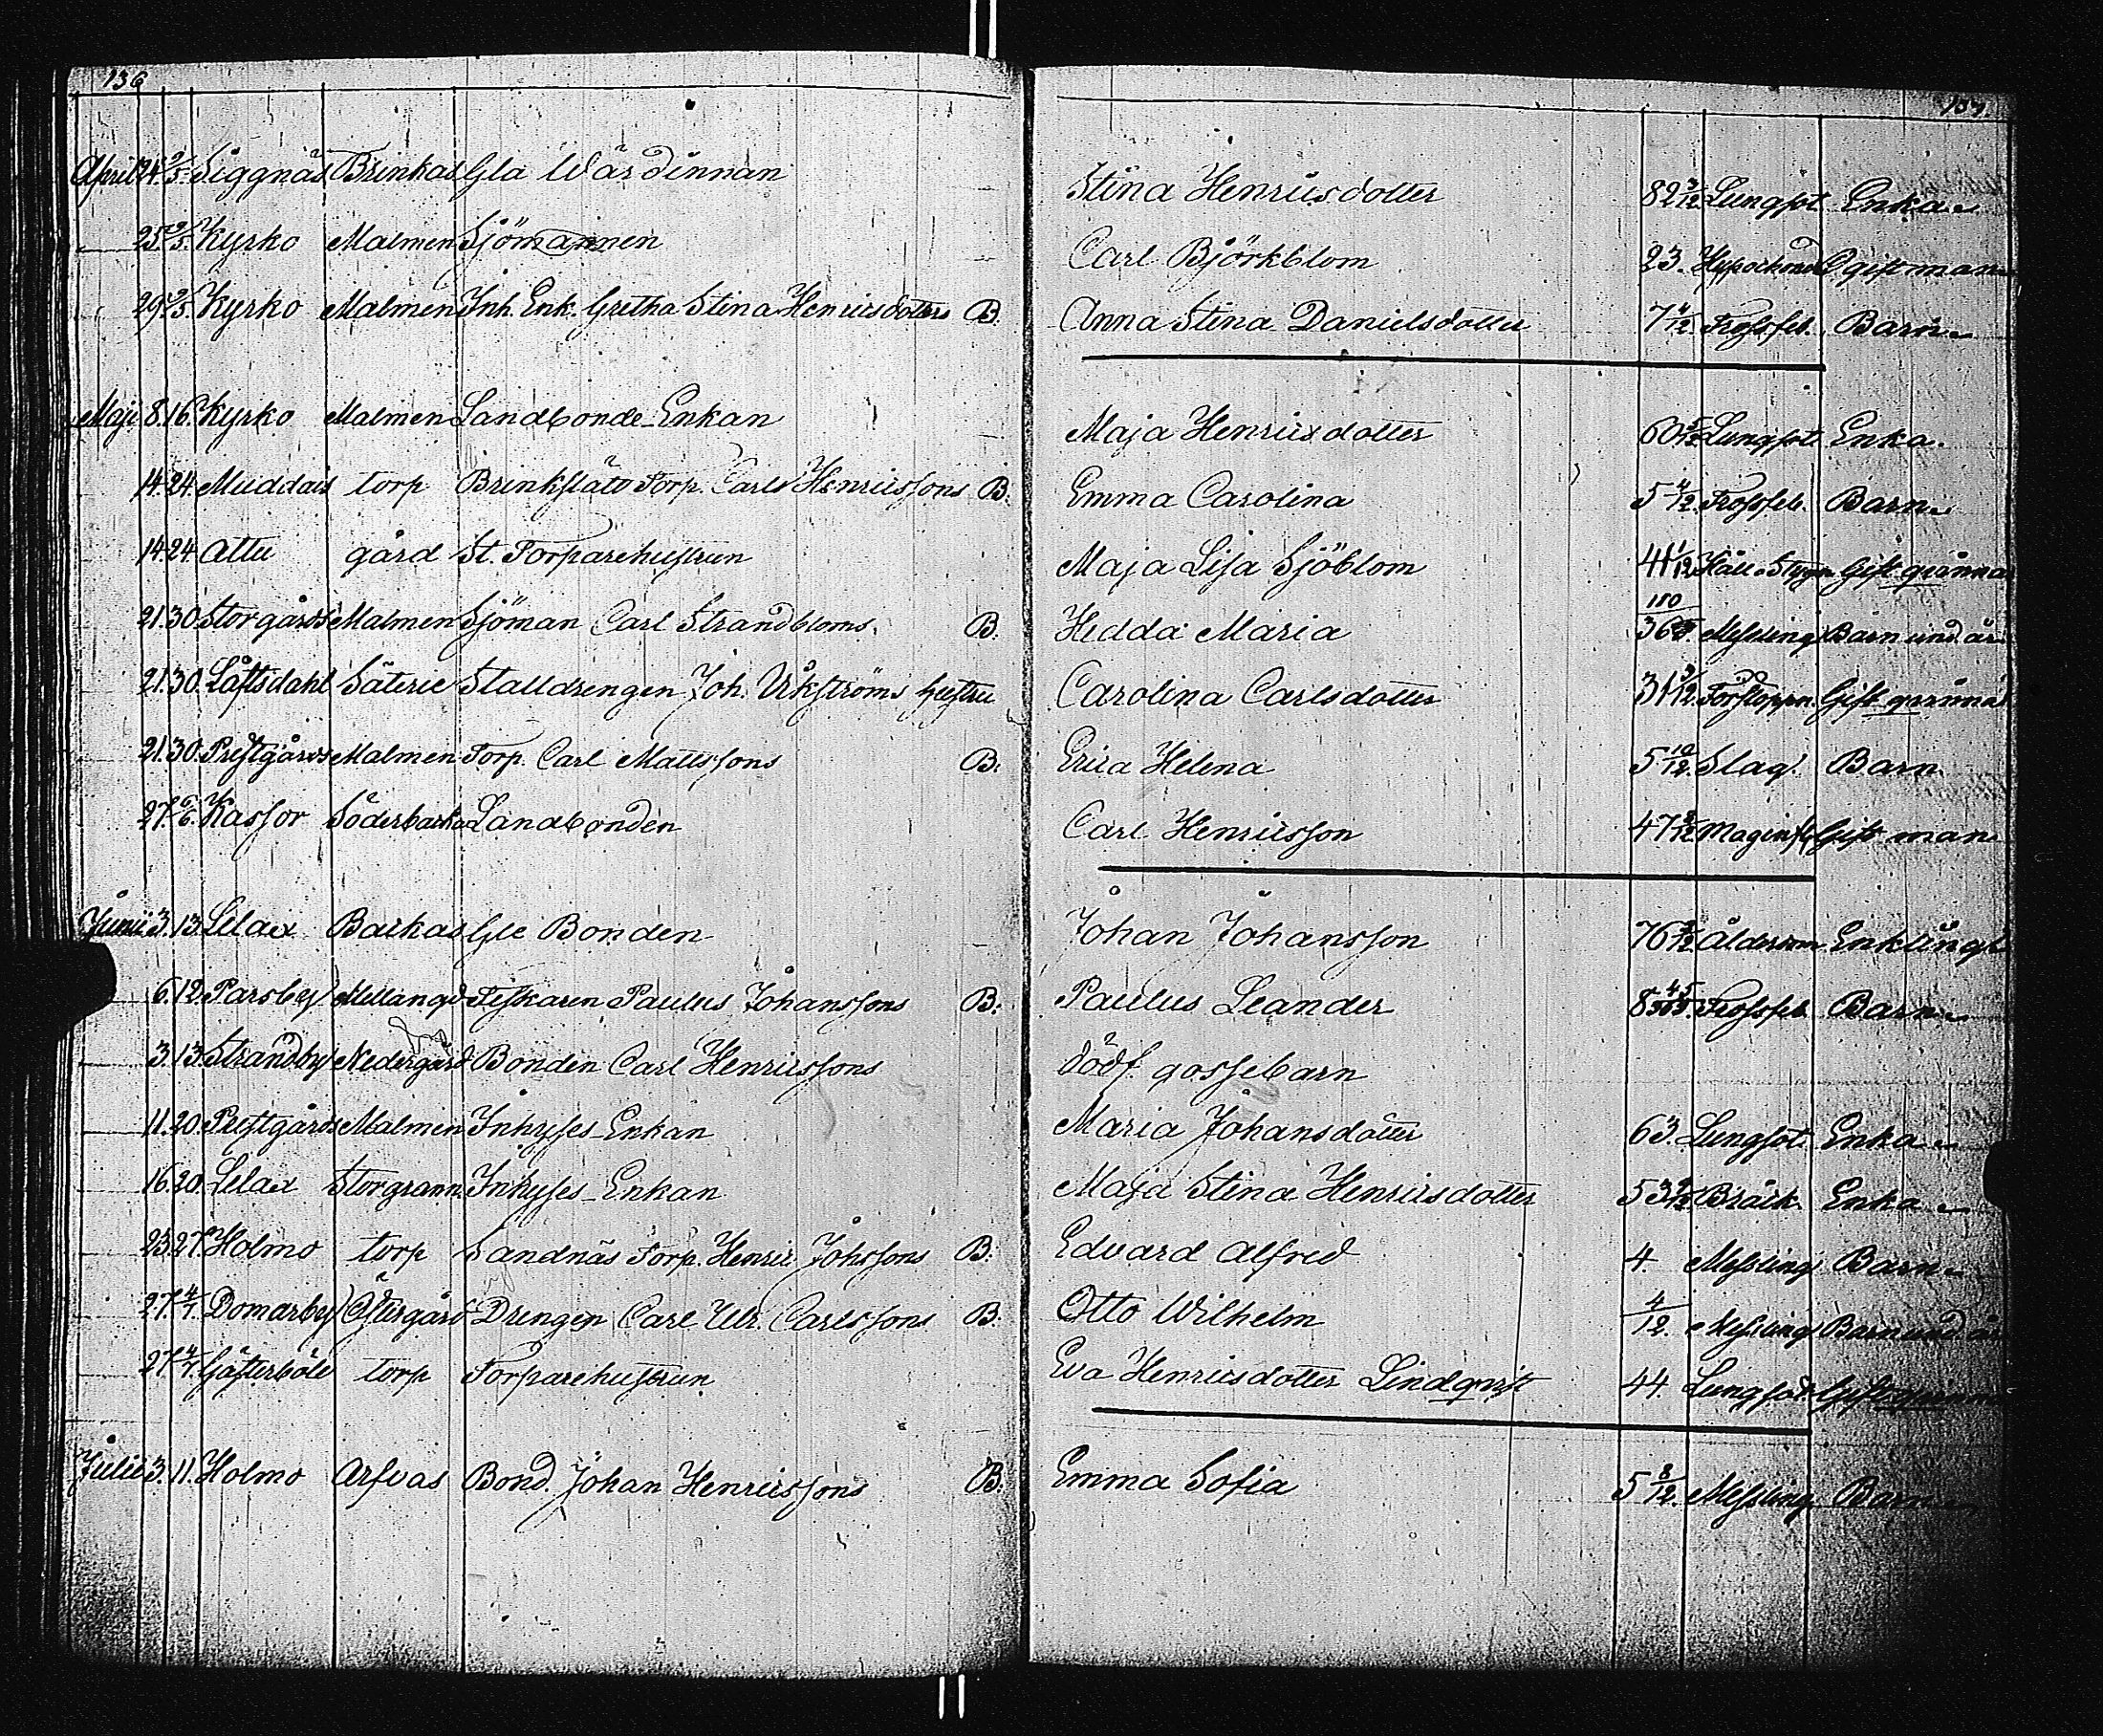 136
137.
April 24. 2/5. Siggnäs Brinkas Gla Wärdinnan Stina Henricsdotter 82 3/12. Lungsot Enka
25. 2/5. Kyrko Malmen Sjömannen Carl Björkblom 23. Hypochond Ogift man
29. 2/5. Kyrko Malmen Inh. Enk. Gretha Stina Henricsdotters B. Anna Stina Danielsdotter 7 4/12. Frossfeb. Barn
Maji 8. 16. Kyrko Malmen Landbonde Enkan Maja Henricsdotter 60 Lungsot Enka.
14. 24. Muddais torp Brinkslätt Torp. Carls Henricssons B. Emma Carolina 5 4/12. Frossfeb. Barn
14. 24. Attu gård St. Torparehustrun Maja Lisa Sjöblom 41 1/12 Håll o Styng Gift qvinna
21. 30. Storgårds Malmen Sjöman Carl Strandbloms B. Hedda Maria 180/365 Messling Barn und. år
21. 30. Låftsdahl Säterie Stalldrengen Joh. Åkströms hustru Carolina Carlsdotter 31 3/12. Förstoppn. Gift qvinna
21. 30. Prestgårds Malmen Torp. Carl Mattssons B. Erica Helena 5 10/12. Slag. Barn
27. 6/6. Kassor Söderbacka Landbonden Carl Henricsson 47 Maginfl Gift man
Junii 3. 13. Lelax Backas Gle Bonden Johan Johansson 76 Ålderdom Enkling
6. 12. Parsby Mellangd Fiskaren Paulus Johanssons B. Paulus Leander 8 45/365. Frossfeb Barn
3. 13. Strandby Nedergård Bonden Carl Henricssons dödf gossebarn
11. 20. Prestgårds Malmen Inhyses Enkan Maria Johansdotter 63. Lungsot. Enka
16. 20. Lelax Storgrann. Inhyses Enkan Maja Stina Henricsdotter 53 Bråck. Enka
23. 27. Holmo torp Sandnäs Torp. Henric Johssons B. Edvard Alfred 4. Messling Barn
27. 4/7. Domarby Östergård Drengen Carl Ulr. Carlssons B. Otto Wilhelm 4/12. Messling Barn und år
27. 4/7. Gästerböle torp Torparehustrun Eva Henricsdotter Lindqvist 44. Lungsot Gift qvinna
Julii 3. 11. Holmo Arfvas Bond. Johan Henricssons B. Emma Sofia 5 8/12. Messling Barn